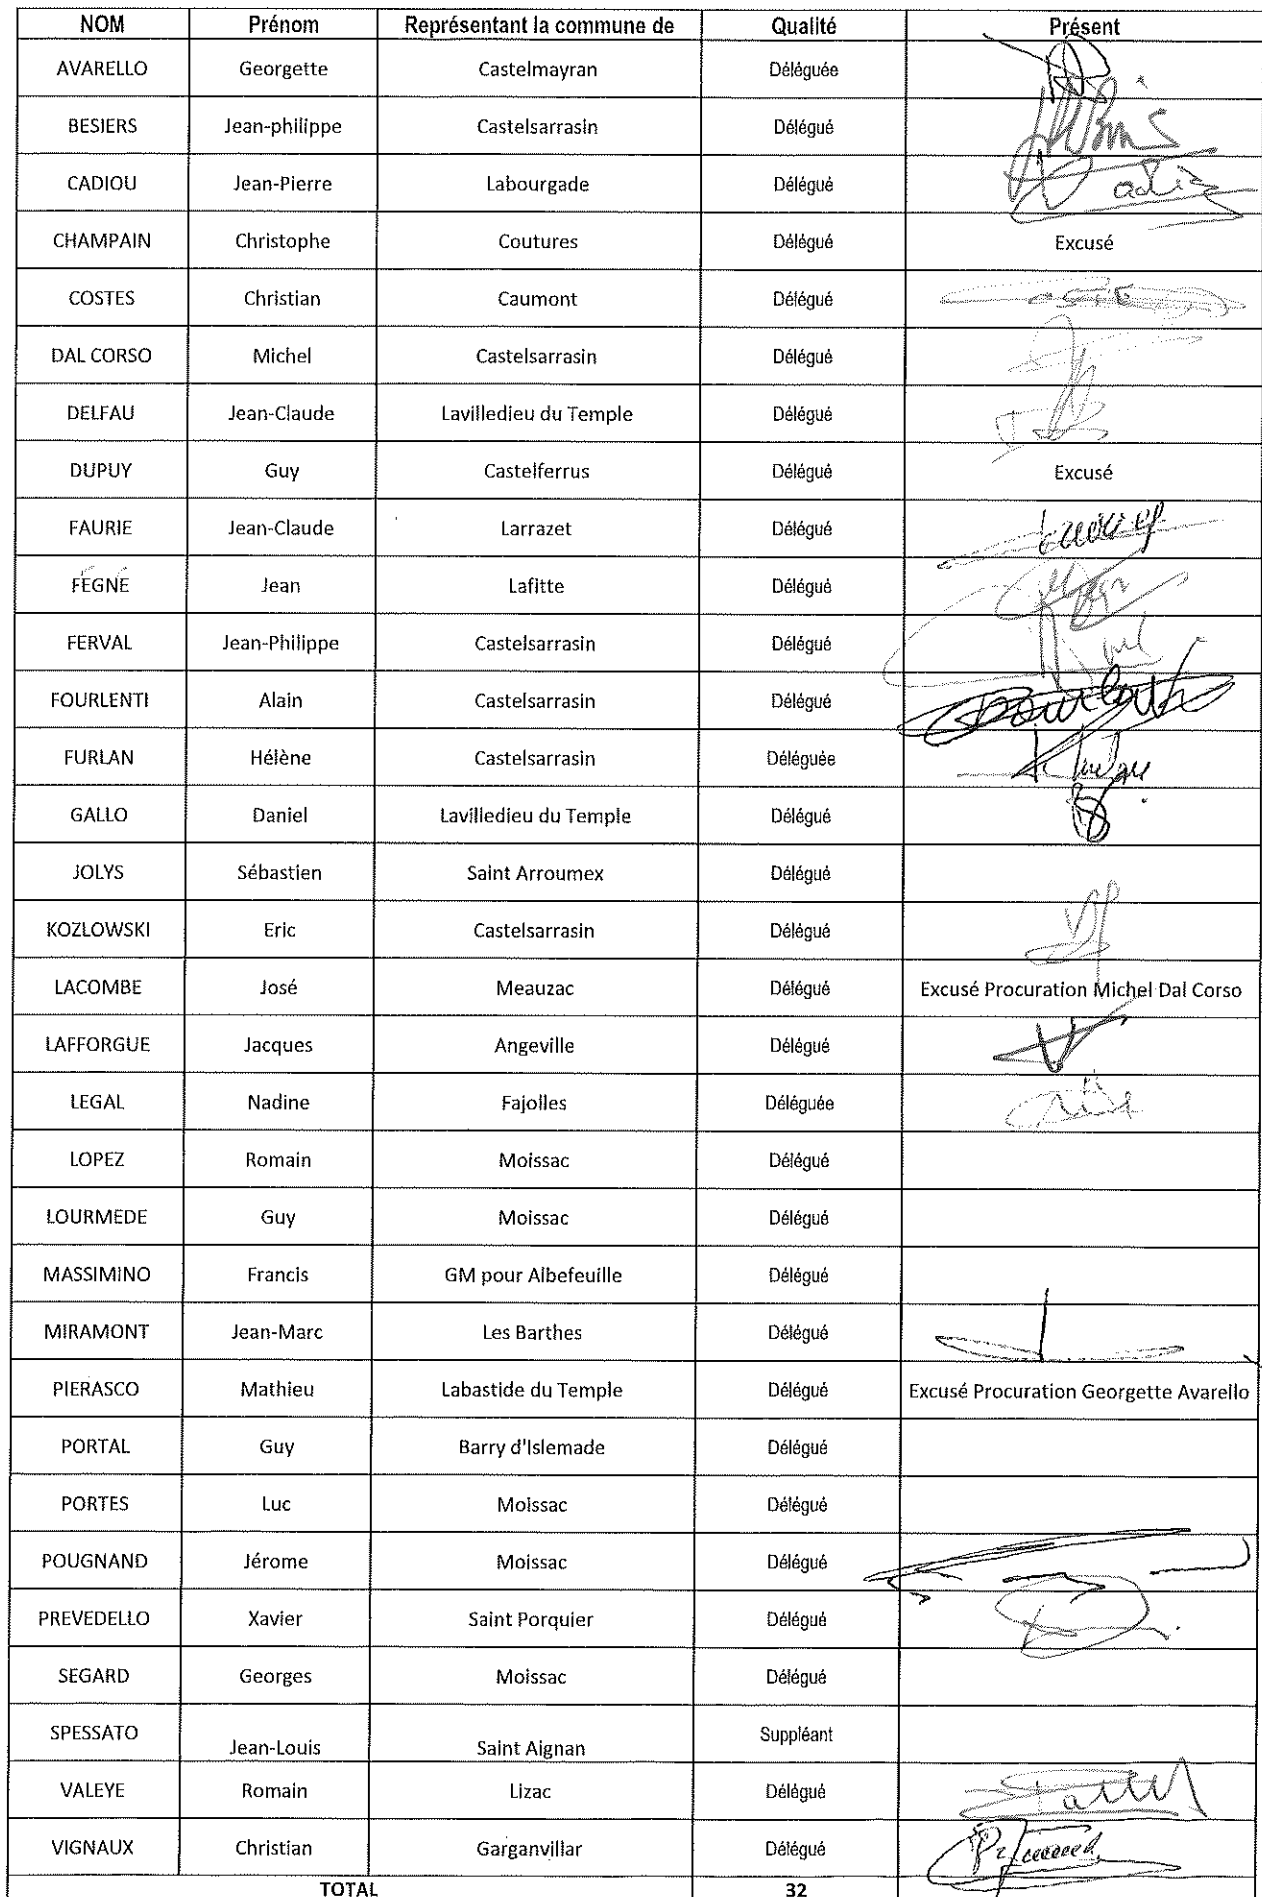 NOM Prénom Représentant la commune de Qualité Présent
AVARELLO Georgette Castelmayran Déléguée
BESIERS Jean-philippe Castelsarrasin Délégué
CADIOU Jean-Pierre Labourgade Délégué
CHAMPAIN Christophe Coutures Délégué Excusé
COSTES Christian Caumont Délégué
DAL CORSO Michel Castelsarrasin Délégué
DELFAU Jean-Claude Lavilledieu du Temple Délégué
DUPUY Guy Castelferrus Délégué Excusé
FAURIE Jean-Claude Larrazet Délégué
FEGNE Jean Lafitte Délégué
FERVAL Jean-Philippe Castelsarrasin Délégué
FOURLENTI Alain Castelsarrasin Délégué
FURLAN Hélène Castelsarrasin Déléguée
GALLO Daniel Lavilledieu du Temple Délégué
JOLYS Sébastien Saint Arroumex Délégué
KOZLOWSKI Eric Castelsarrasin Délégué
LACOMBE José Meauzac Délégué Excusé Procuration Michel Dal Corso
LAFFORGUE Jacques Angeville Délégué
LEGAL Nadine Fajolles Déléguée
LOPEZ Romain Moissac Délégué
LOURMEDE Guy Moissac Délégué
MASSIMINO Francis GM pour Albefeuille Délégué
MIRAMONT Jean-Marc Les Barthes Délégué
PIERASCO Mathieu Labastide du Temple Délégué Excusé Procuration Georgette Avarello
PORTAL Guy Barry d'Islemade Délégué
PORTES Luc Moissac Délégué
POUGNAND Jérome Moissac Délégué
PREVEDELLO Xavier Saint Porquier Délégué
SEGARD Georges Moissac Délégué
SPESSATO Jean-Louis Saint Aignan Suppléant
VALEYE Romain Lizac Délégué
VIGNAUX Christian Garganvillar Délégué
TOTAL 32